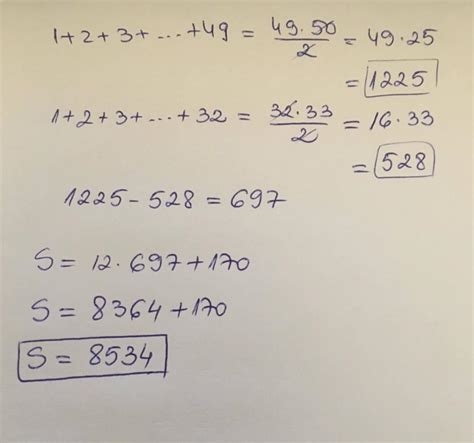 1+2+3+...+49 = 49.50/2 = 49.25
= 1225
1+2+3+...+32 = 32.33/2 = 16.33
= 528
1225-528=697
S= 12.697+170
S= 8364+170
S= 8534